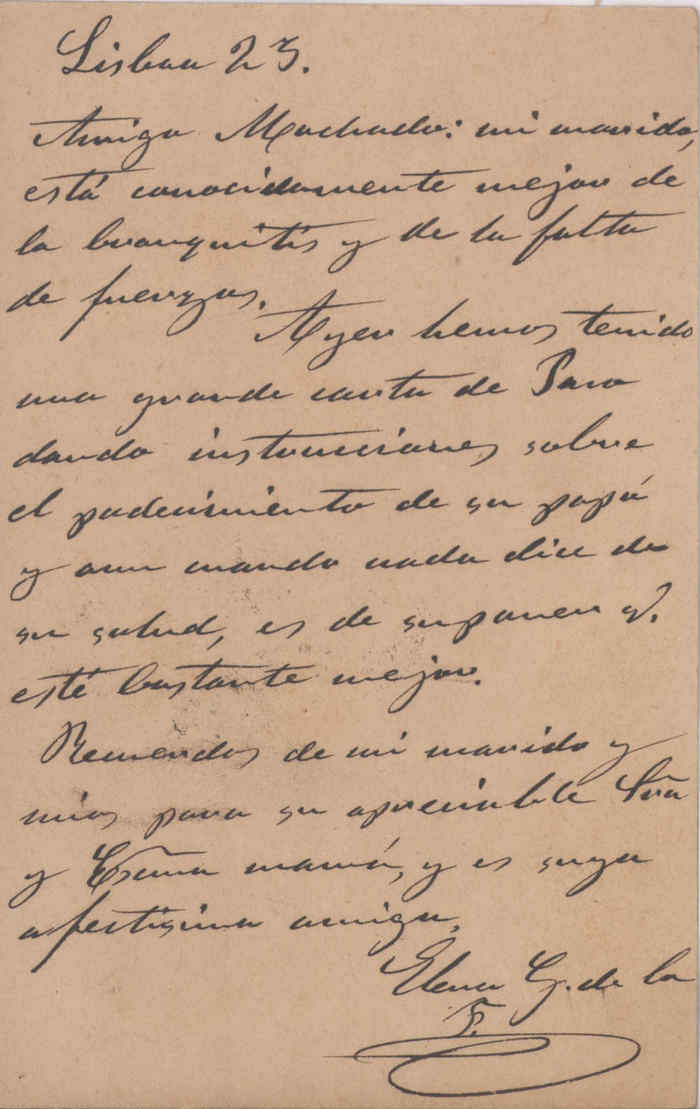 Lisboa 23.
Amigo Machado: mi marido,
está conocidamente mejor de
la bronquitis y de la falta
de fuerzas.
Ayer hemos tenido
una grande carta de
dando instrucciones sobre
el padecimiento de su papá
y aun cuando nada dice de
su salud, es de suponer q.
esté bastante mejor.
Recuerdos de mi marido y
mios para su apreciable Sra
y Exma mamá, y es suya
afectisima amiga,
Elena G. de la
F.